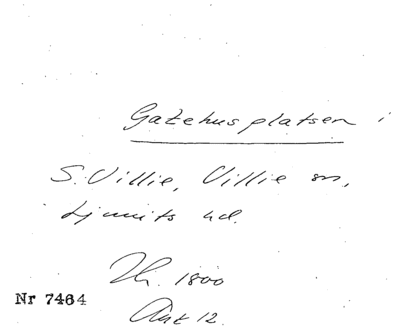 Gatehusplatsen i
S. Villie, Villie sn,
Ljunits hd.
Th. 1800
Nr 7464
Akt 12.